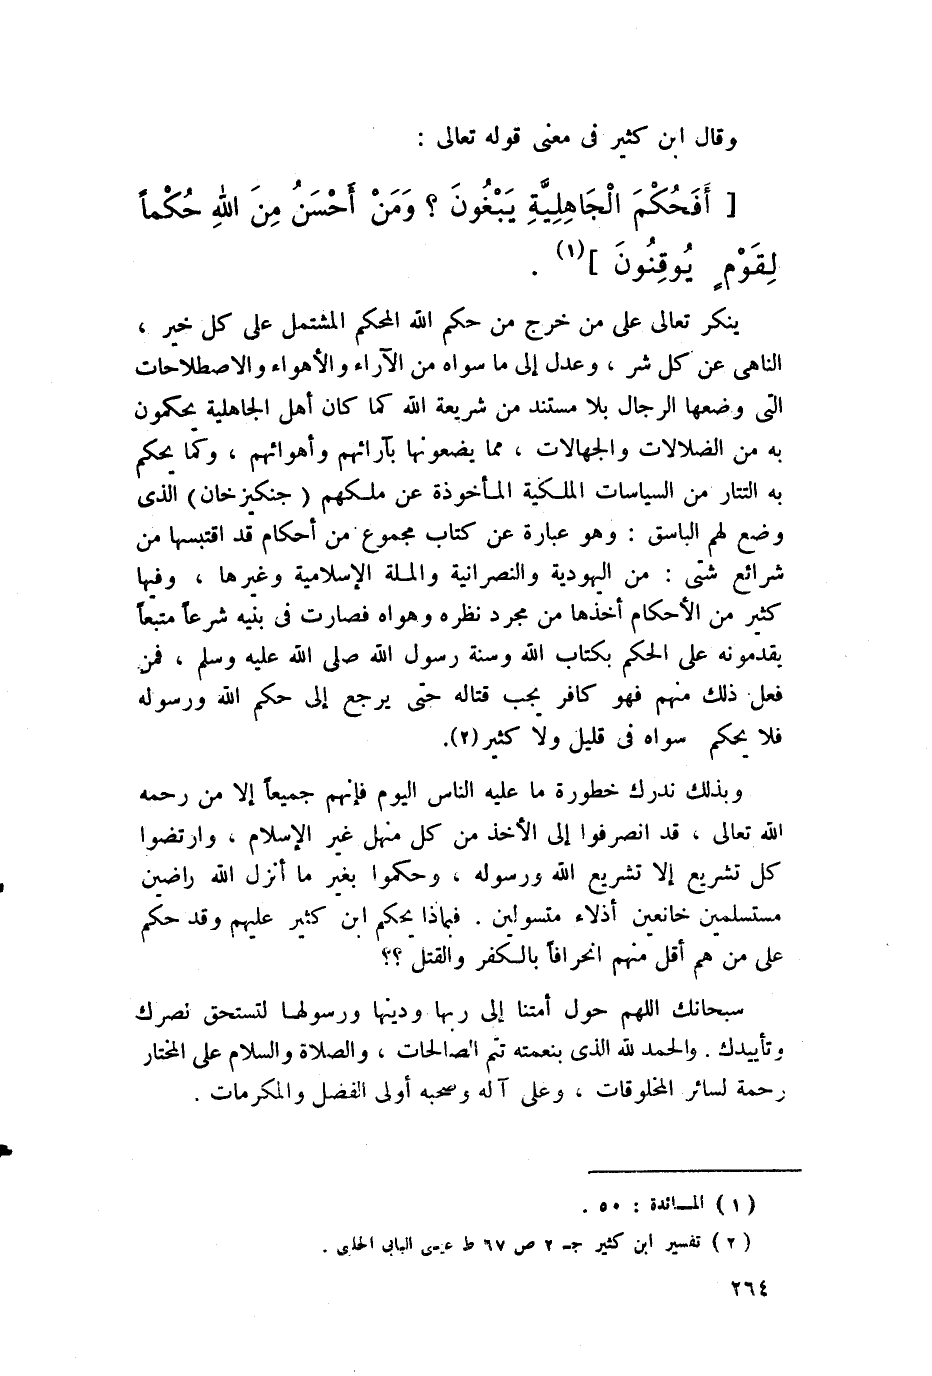 وقال ابن كثير فى معنى قوله تعالى :
[ أَفَحُكْمَ الْجَاهِلِيَّةِ يَبْغُونَ ؟ وَمَنْ أَحْسَنُ مِنَ اللهِ حُكْماً
لِقَوْمٍ يُوقِنُونَ ](١) .
ينكر تعالى على من خرج من حكم الله المحكم المشتمل على كل خير ،
الناهى عن كل شر ، وعدل إلى ما سواه من الآراء والأهواء والاصطلاحات
التى وضعها الرجال بلا مستند من شريعة الله كما كان أهل الجاهلية يحكمون
به من الضلالات والجهالات ، مما يضعونها بآرائهم وأهوائهم ، وكما يحكم
به التتار من السياسات الملكية المأخوذة عن ملكهم ( جنكيز خان ) الذى
وضع لهم الباسق : وهو عبارة عن كتاب مجموع من أحكام قد اقتبسها من
شرائع شتى : من اليهودية والنصرانية والملة الإسلامية وغيرها ، وفيها
كثير من الأحكام أخذها من مجرد نظره وهواه فصارت فى بنيه شرعاً متبعاً
يقدمونه على الحكم بكتاب الله وسنة رسول الله صلى الله عليه وسلم ، فمن
فعل ذلك منهم فهو كافر يجب قتاله حتى يرجع إلى حكم الله ورسوله
فلا يحكم سواه فى قليل ولا كثير (٢).
وبذلك ندرك خطورة ما عليه الناس اليوم فإنهم جميعاً إلا من رحمه
الله تعالى ، قد انصرفوا إلى الأخذ من كل منهل غير الإسلام ، وارتضوا
كل تشريع إلا تشريع الله ورسوله ، وحكموا بغير ما أنزل الله راضين
مستسلمين خانعين أذلاء متسولين . فبماذا يحكم ابن كثير عليهم وقد حكم
على من هم أقل منهم انحرافاً بالكفر والقتل ؟؟
سبحانك اللهم حول أمتنا إلى ربها ودينها ورسولها لتستحق نصرك
وتأييدك . والحمد لله الذى بنعمته تتم الصالحات ، والصلاة والسلام على المختار
رحمة لسائر المخلوقات ، وعلى آله وصحبه أولى الفضل والمكرمات .
( ١ ) المائدة : ٥٠ .
( ٢ ) تفسير ابن كثير جـ ٢ ص ٦٧ ط عيسى البابى الحلبى .
٢٦٤